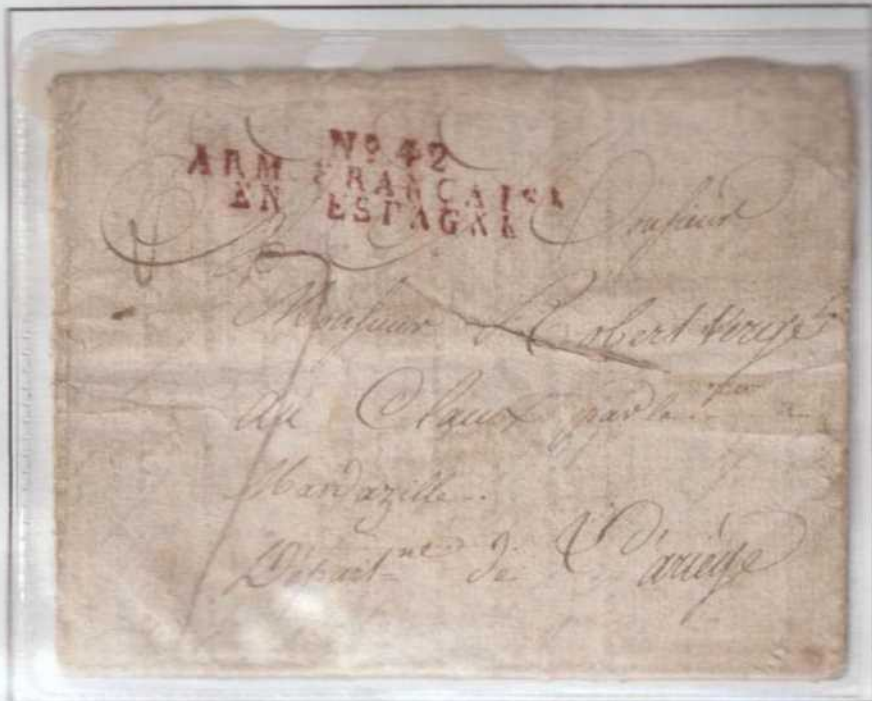 No 42
ARM FRANÇAISE
EN ESPAGNE
Monsieur
Monsieur Robert
au Claux par le
Mardazille.
Départ.ne de L'ariége